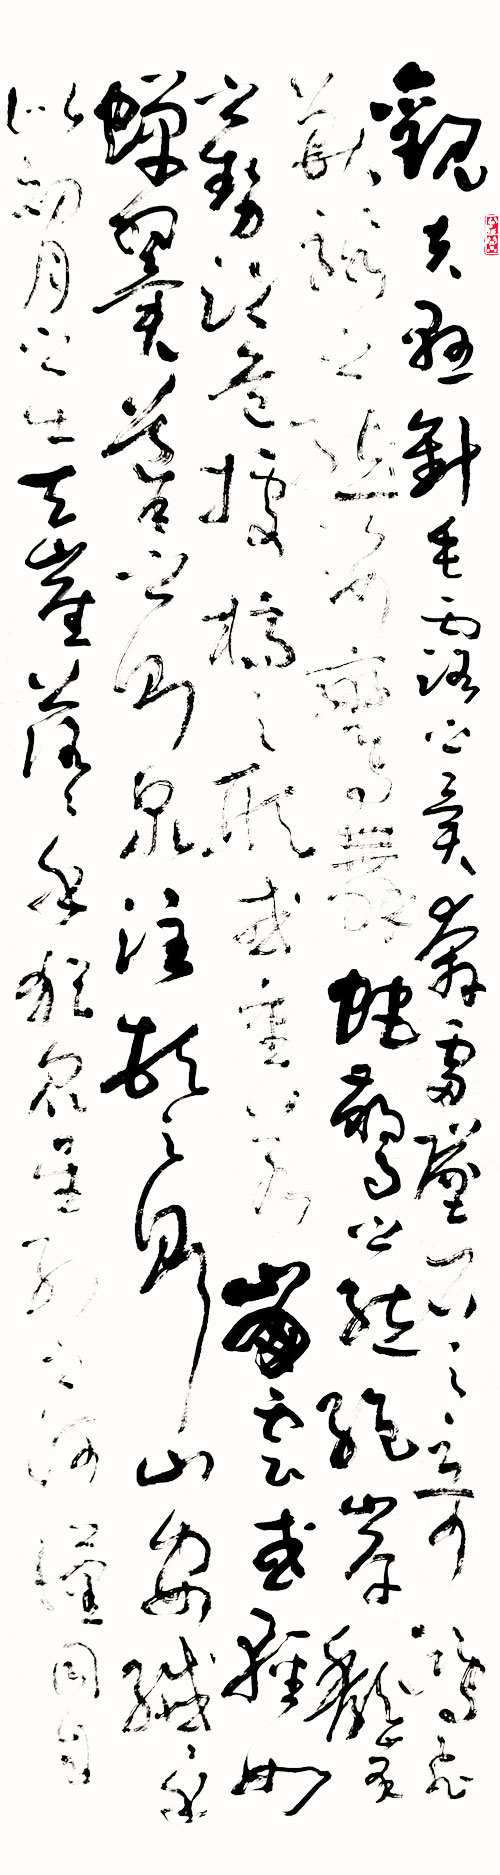 觀夫懸針垂露之異奔雷墜石之奇鴻飛
獸駭之資鸞舞蛇驚之態絕岸頹峯
之勢臨危據槁之形或重若崩雲或輕如
蟬翼導之則泉注頓之則山安纖〻乎
似初月之出天崖落〻乎猶衆星之列河漢同自